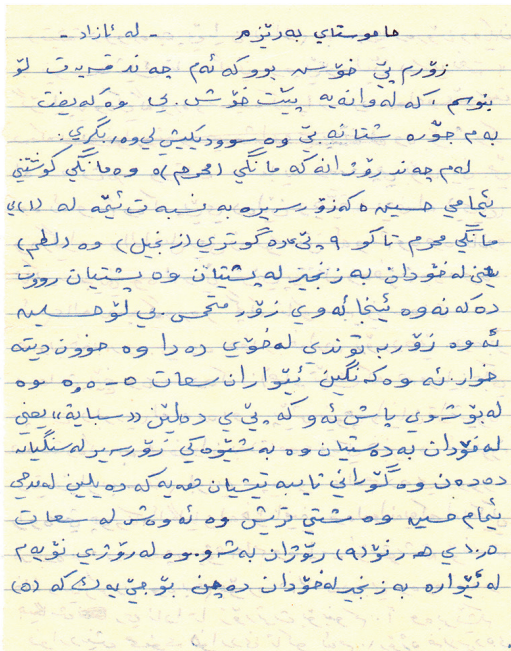 ماموستای بەرێزم - لە ئازاد -
زۆرم پێ خۆش بوو کە ئەم چەند قسەیەت لۆ
بنوسم ، کە لەوانەیە پێت خۆش بی وە کەیفت
بەم جۆرە شتانە بێ وە سوودێکیشی لی وەربگری.
لەم چەند رۆژانە کە مانگی (محرم)ە وە مانگی کوشتنی
ئیمامی حسینە کە زۆر سیرە بە نسبەت ئێمە لە (١)ی
مانگی محرم تاکو ٩ پێی دەگوتری (زنجیل) وە (لطم)
یعنی لەخۆدان بە زنجیر لە پشتیان وە پشتیان رووت
دەکەنەوە ئینجا ئەوی زۆر متحمس بی لۆ حسین
ئەوە زۆر بە توندی لەخۆی دەدا وە خوون دیتە
خوار ئەوەکەنگین ئێواران سعات ٥ - ٥,٥ وە
لەبۆ شوی پاش ئەو کە پێی دەلێن «سبایە» یعنی
لەخۆدان بە دەستیان وە بە شێوەکی زۆر سیر لە سنگیان
دەدەن وە گۆرانی تایبەتیشیان هەیە کە دەیلین لە مدحی
ئیمام حسین وە شتی تریش وە ئەوەش لە سعات
ی هەر نۆ (٩) رۆژان بە شەو.وە لە رۆژی نۆیەم
لە ئێوارە بە زنجیر لەخۆدان دەچن بۆ جێیەک کە (٥)